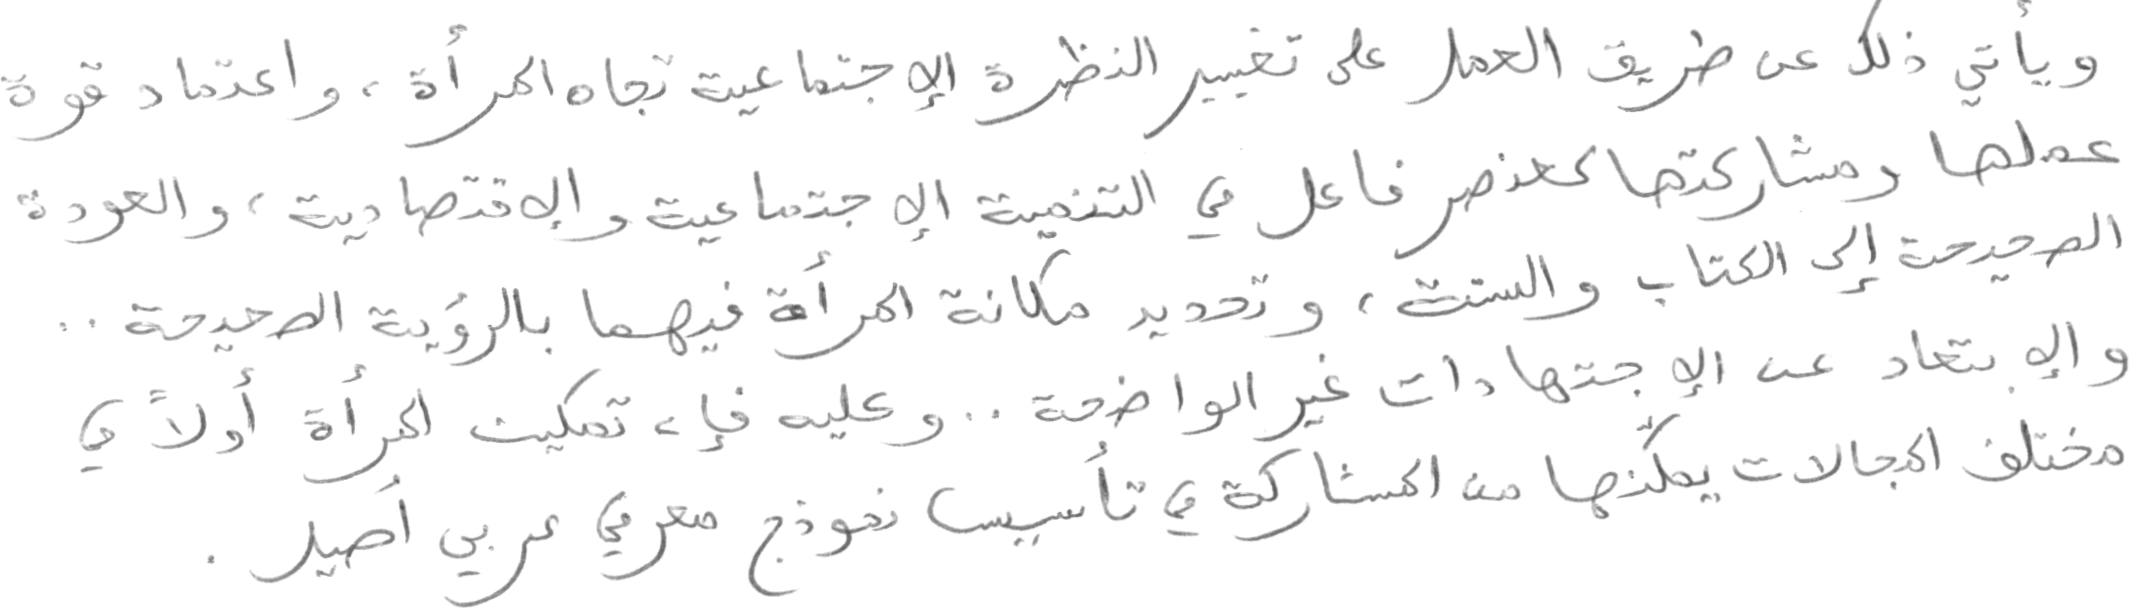 ويأتي ذلك عن طريق العمل على تغيير النظرة الإجتماعية تجاه المرأة ، واعتماد قوة
عملها ومشاركتها كعنصر فاعل في التنمية الإجتماعية والإقتصادية ، والعودة
الصحيحة إلى الكتاب والسنة ، وتحديد مكانة المرأة فيهما بالرؤية الصحيحة ..
والإبتعاد عن الإجتهادات غير الواضحة .. وعليه فإن تمكين المرأة أولاً في
مختلف المجالات يمكّنها من المشاركة في تأسيس نموذج معرفي عربي أصيل .